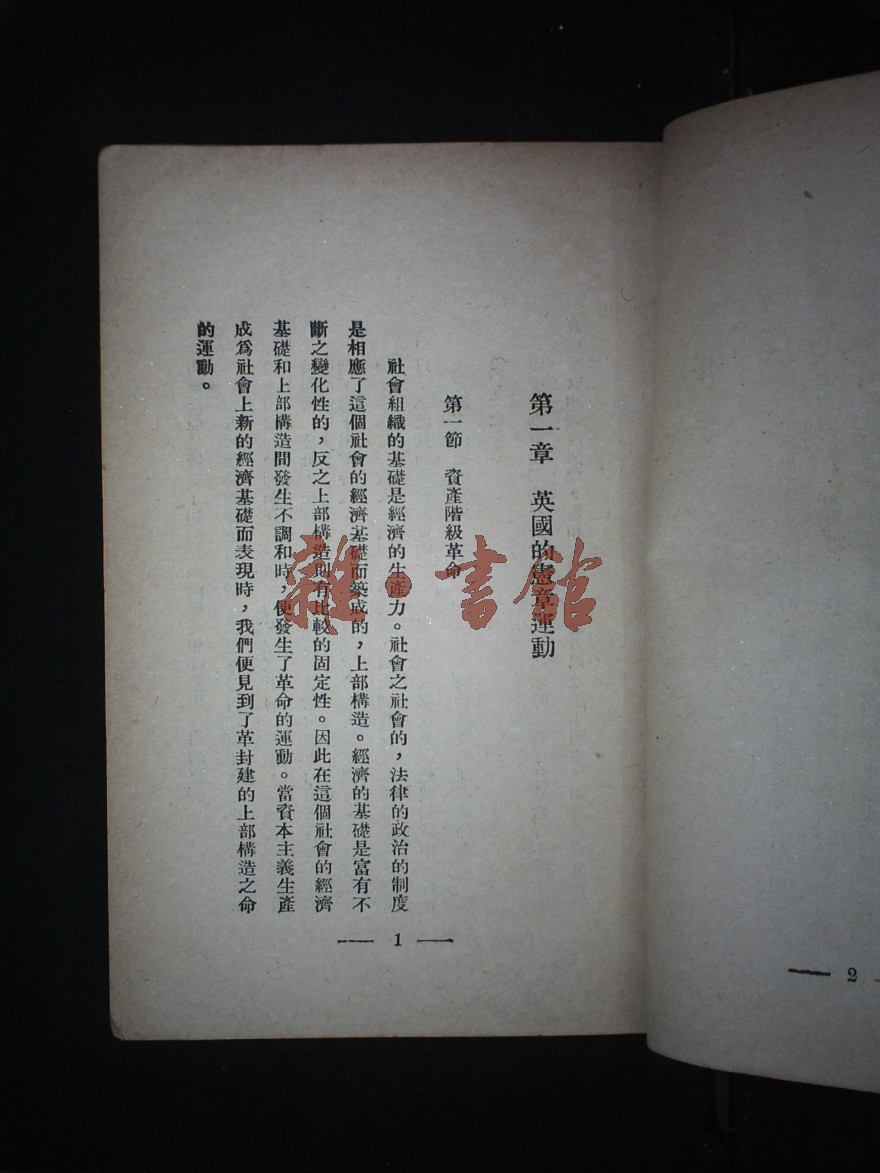 第一章　英國的憲章運動
第一節　資產階級革命
社會組織的基礎是經濟的生產力。社會之社會的，法律的政治的制度
是相應了這個社會的經濟基礎而築成的，上部構造。經濟的基礎是富有不
斷之變化性的，反之上部構造則有比較的固定性。因此在這個社會的經濟
基礎和上部構造間發生不調和時，便發生了革命的運動。當資本主義生產
成爲社會上新的經濟基礎而表現時，我們便見到了革封建的上部構造之命
的運動。
— 1 —
— 2
雜·書館